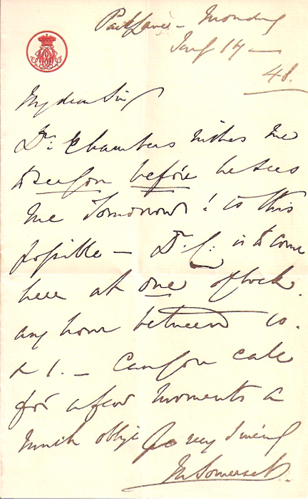 Monday
Jany 17 —
48.
My dear Sir
Dr. Chambers wishes me
to see you before he sees
me Tomorrow! is this
possible — Dr. C: is to come
here at one o'clock.
any hour between 10.
& 1. — Can you call
for a few moments &
much oblige yrs very
M Somerset